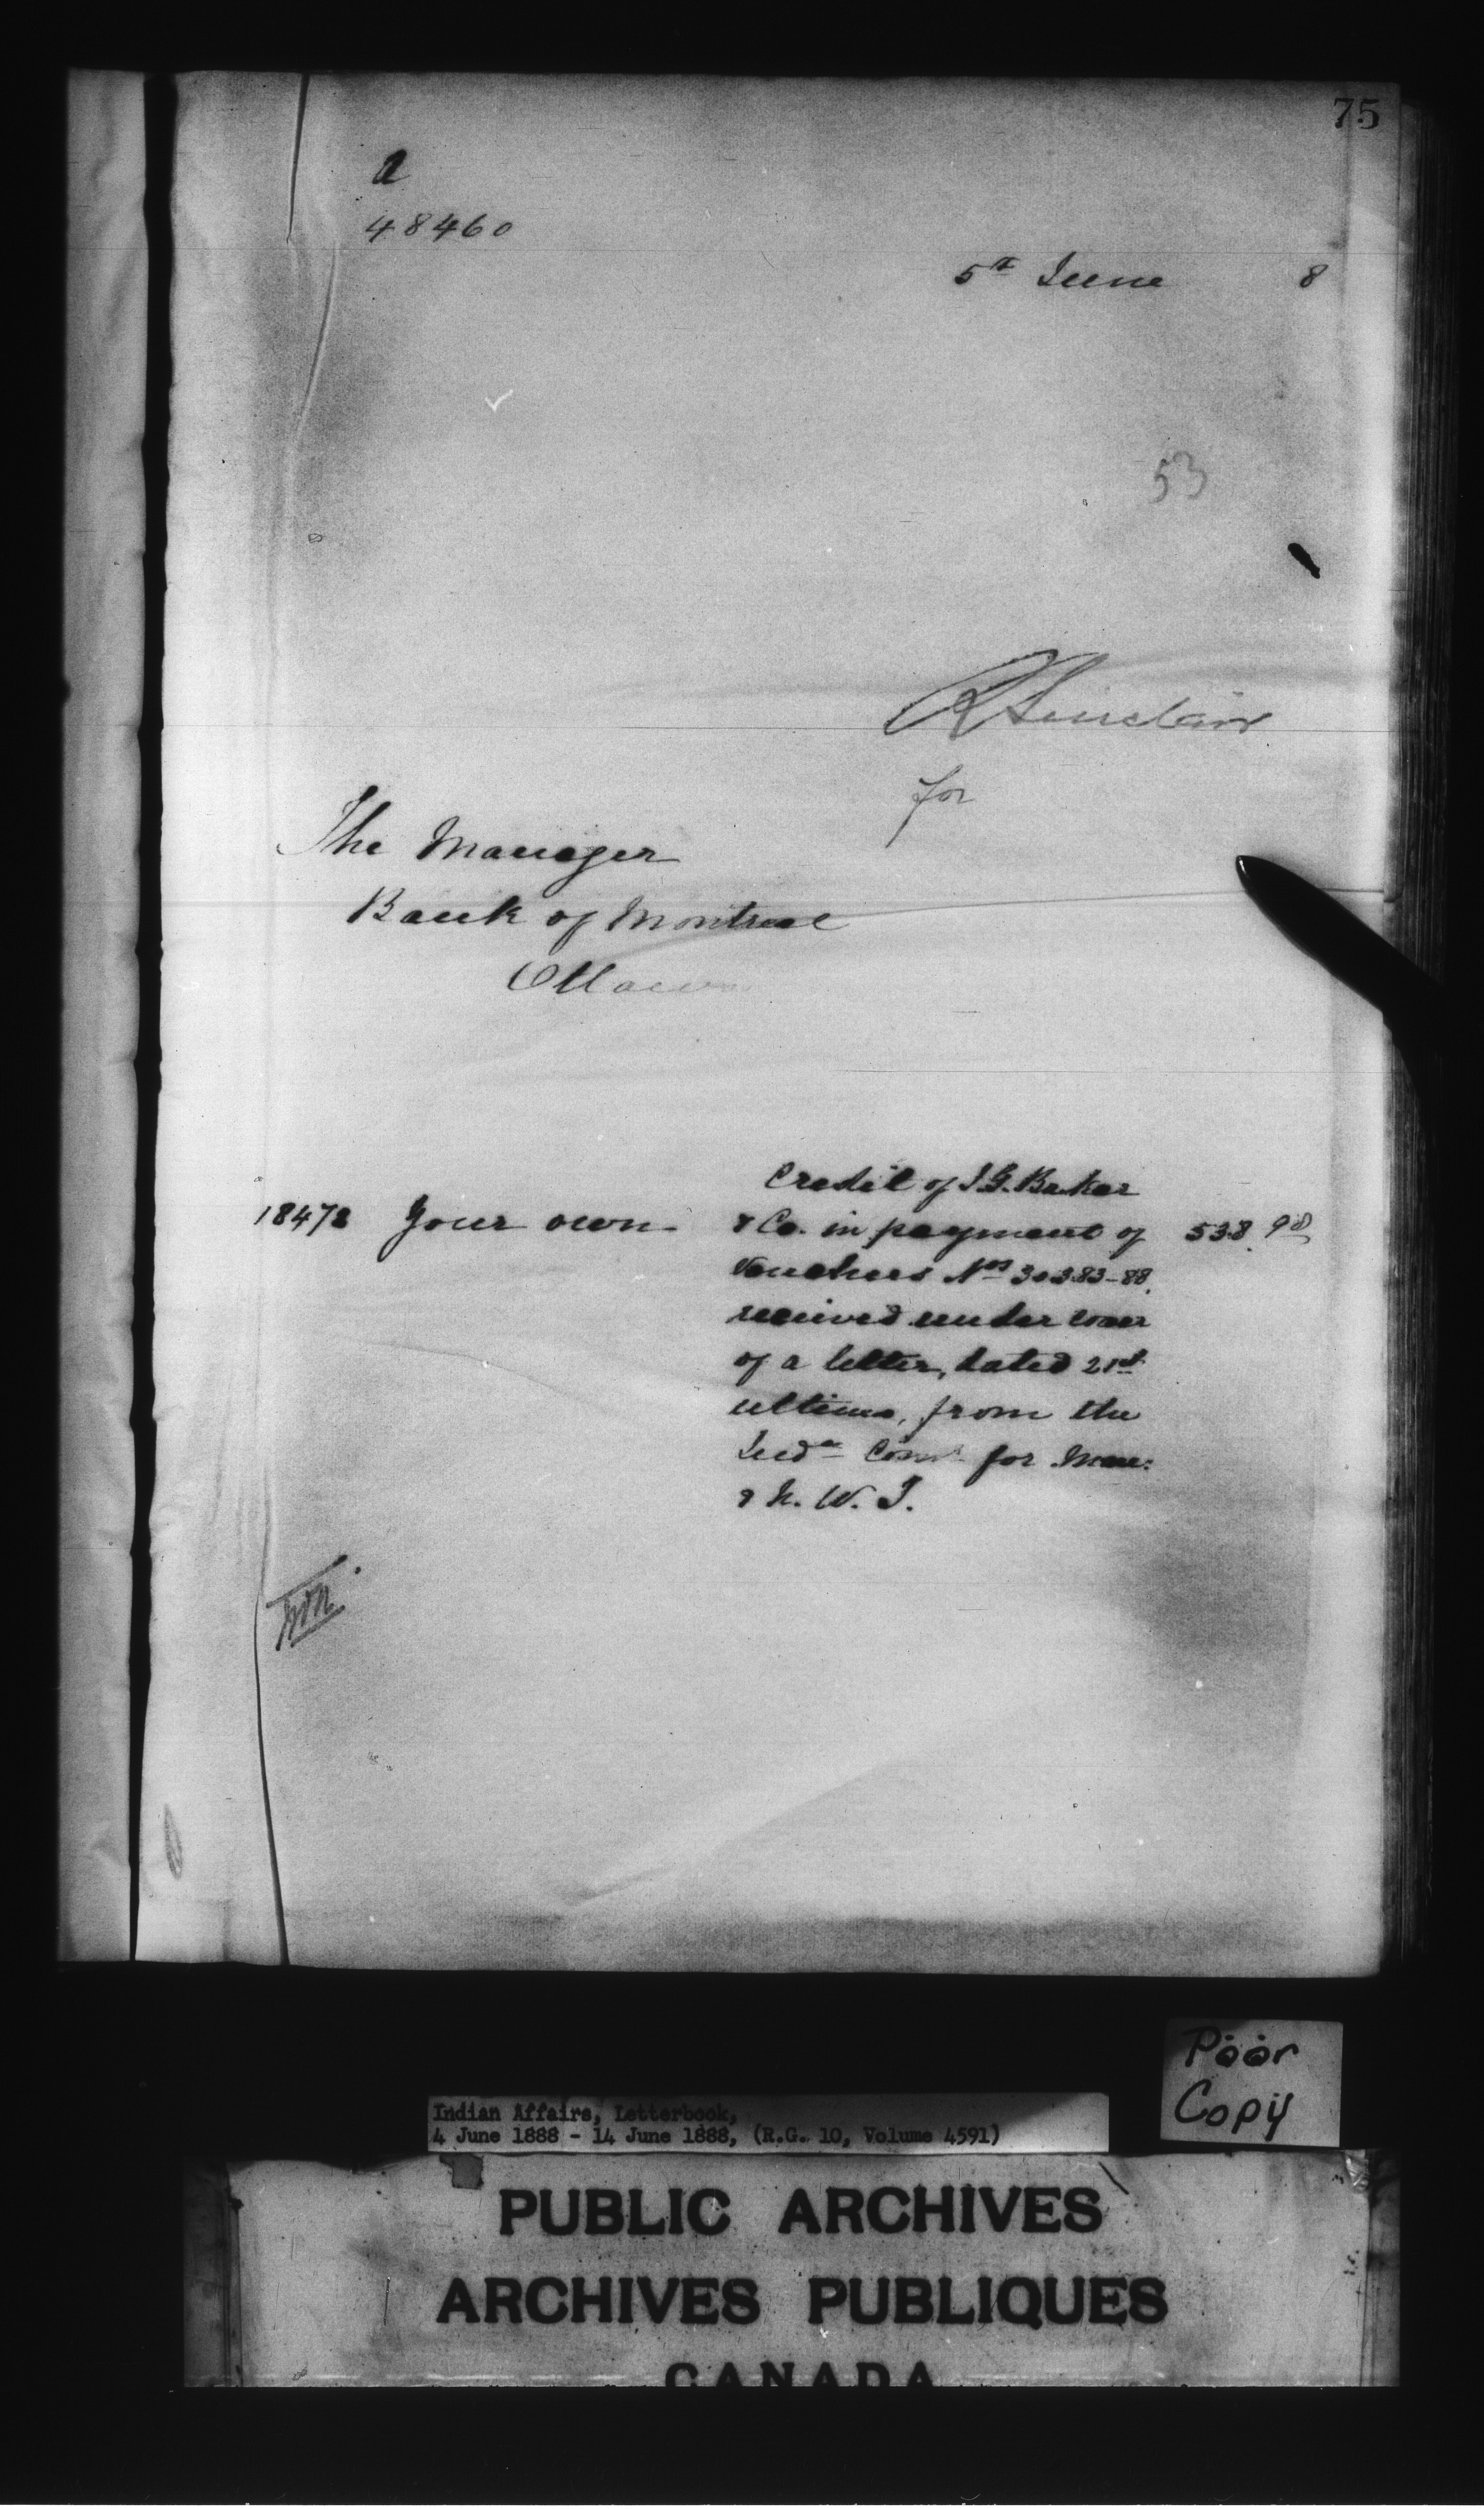 75
a
48460
5th June 8
53
R Sinclair
for
The Manager
Bank of Montreal
Ottawa
Credit of I.G. Baker
18478 Your own & Co. in payment of 538.90
Vouchers Nos 30383-88,
received under cover
of a letter, dated 21st
ultimo, from the
Indn Comr for Man:
& N. W. T.
Indian Affairs, Letterbook,
4 June 1888 - 14 June 1888, (R.G. 10, Volume 4591)
Poor
Copy
PUBLIC ARCHIVES
ARCHIVES PUBLIQUES
CANADA